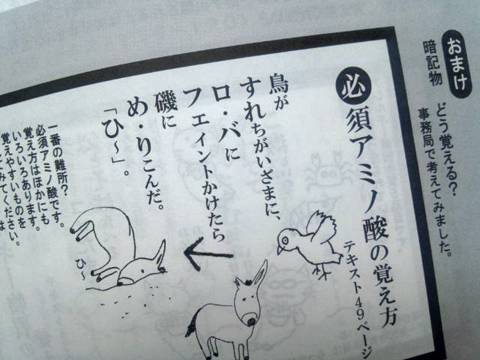 おまけ
暗記物 どう覚える?
事務局で考えてみました。
必須アミノ酸の覚え方
テキスト49ページ
鳥が
すれちがいざまに、
ロ・バに
フェイントかけたら
磯に
め・りこんだ。
「ひ〜」。
ひ〜
一番の難所?
必須アミノ酸です。
覚え方はほかにも
いろいろあります。
覚えやすいものを